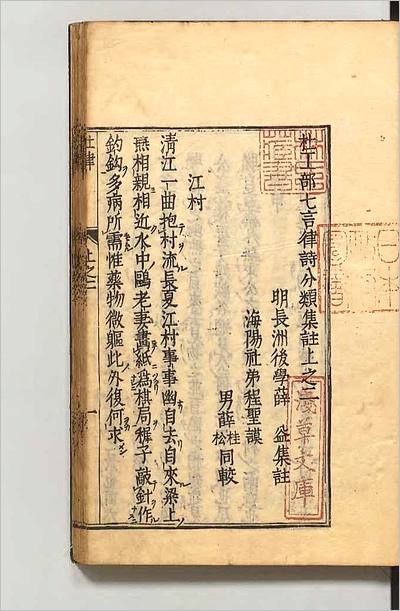 杜工部七言律詩分類集註上之二
明長洲後學薛益集註
海陽社弟程聖謨
男薛桂松同較
江村
清江一曲抱村流長夏江村事事幽自去自來梁上
燕相親相近水中鷗老妻畫紙爲棋局稚子敲針作
釣鈎多病所需惟藥物微軀此外復何求
淺草文庫
杜律
上之二
一